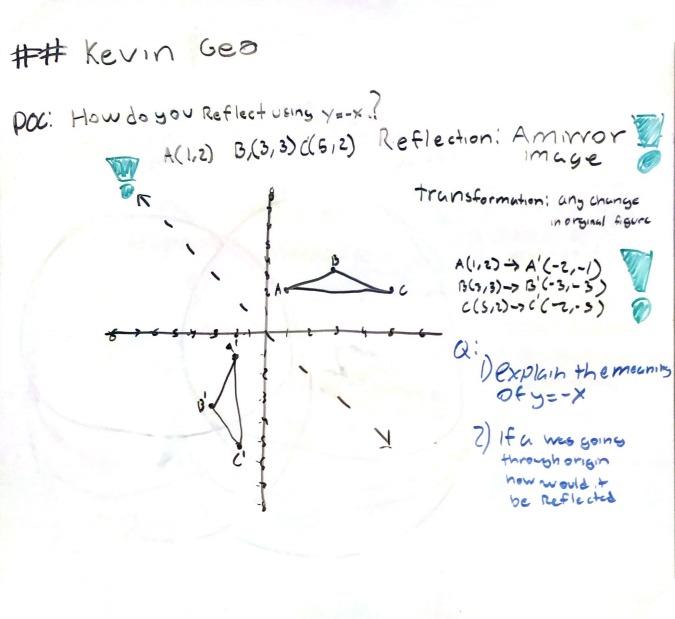 ## Kevin Geo
POC: How do you Reflect using y=-x.?
A(1,2) B,(3,3) C(5,2)
Reflection: A mirror
image
transformation: any change
in orginal figure
A(1,2)→A'(-2,-1)
B(3,3)→B'(-3,-3)
C(5,2)→C'(-2,-5)
B
A
C
A'
B'
C'
Q:
1) explain the meaning
of y=-x
2) If a was going
through origin
how would it
be Reflected